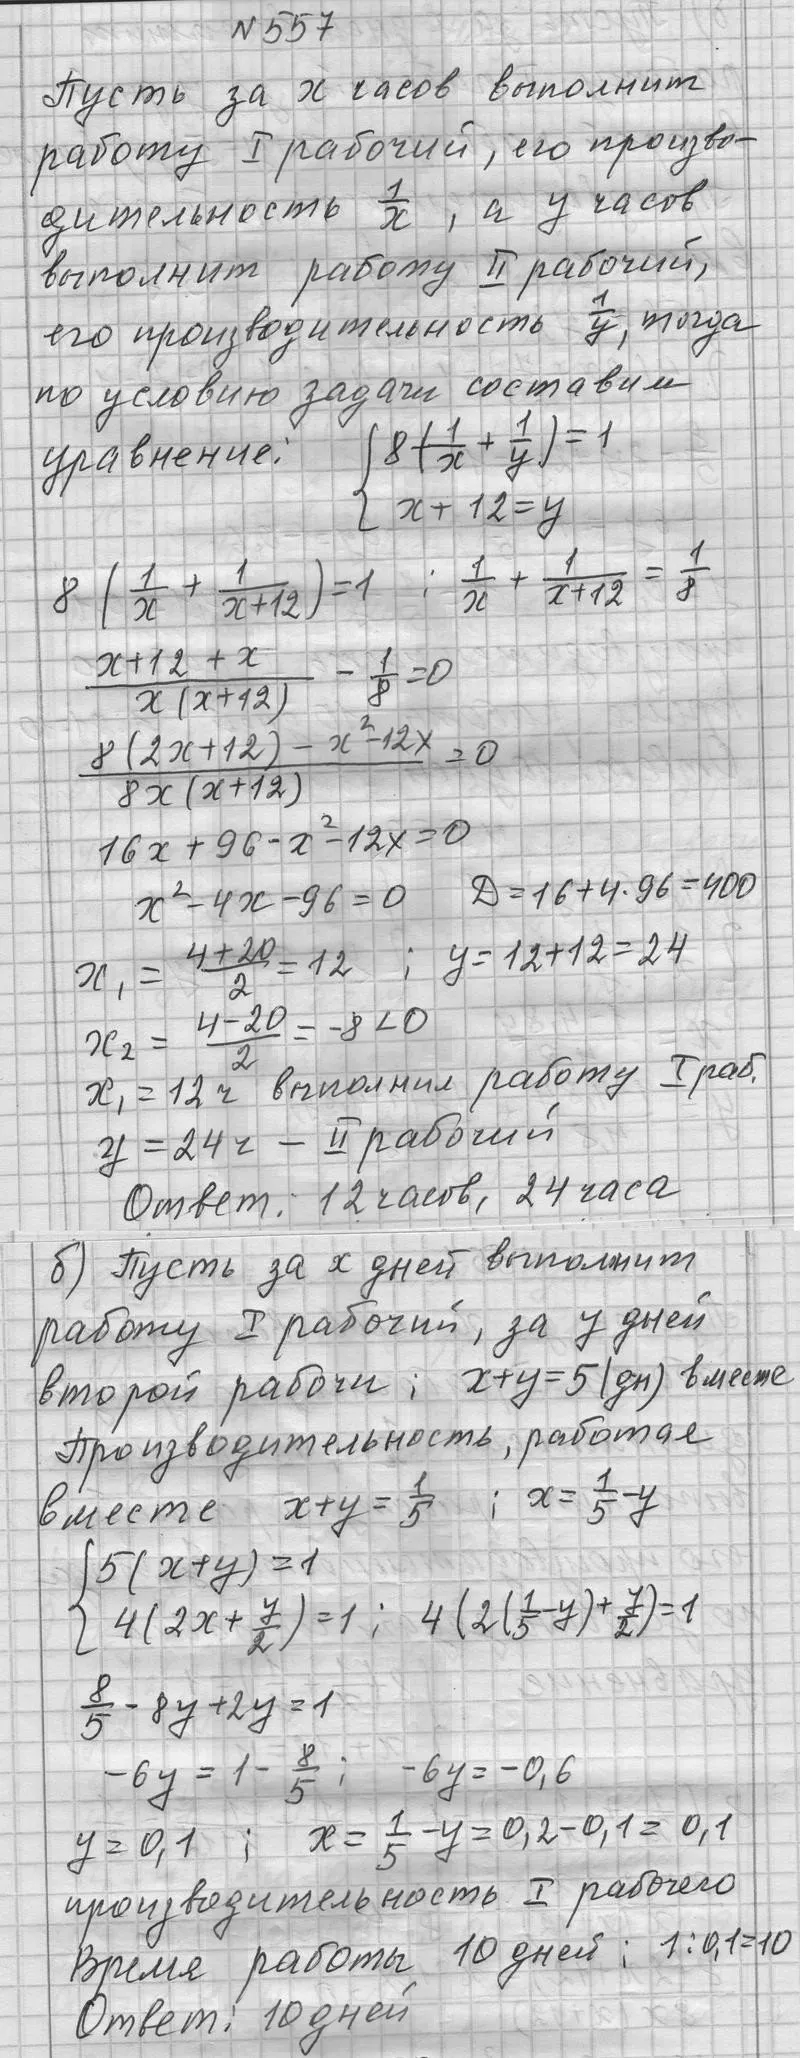 №557
Пусть за x часов выполнит
работу I рабочий, его произво-
дительность 1/x, а y часов
выполнит работу II рабочий,
его производительность 1/y, тогда
по условию задачи составим
уравнение: { 8(1/x + 1/y) = 1
x + 12 = y
8 (1/x + 1/(x+12)) = 1 ; 1/x + 1/(x+12) = 1/8
(x+12+x)/(x(x+12)) - 1/8 = 0
(8(2x+12) - x² - 12x)/(8x(x+12)) = 0
16x + 96 - x² - 12x = 0
x² - 4x - 96 = 0 D = 16 + 4·96 = 400
x₁ = (4+20)/2 = 12 ; y = 12 + 12 = 24
x₂ = (4-20)/2 = -8 < 0
x₁ = 12 ч выполнил работу I раб.
y = 24 ч - II рабочий
Ответ: 12 часов, 24 часа
б) Пусть за x дней выполнит
работу I рабочий, за y дней
второй рабочи; x+y=5 (дн) вместе
Производительность, работая
вместе x+y = 1/5 ; x = 1/5 - y
{ 5(x+y) = 1
4(2x + y/2) = 1 ; 4(2(1/5 - y) + y/2) = 1
8/5 - 8y + 2y = 1
-6y = 1 - 8/5 ; -6y = -0,6
y = 0,1 ; x = 1/5 - y = 0,2 - 0,1 = 0,1
производительность I рабочего
Время работы 10 дней ; 1:0,1=10
Ответ: 10 дней